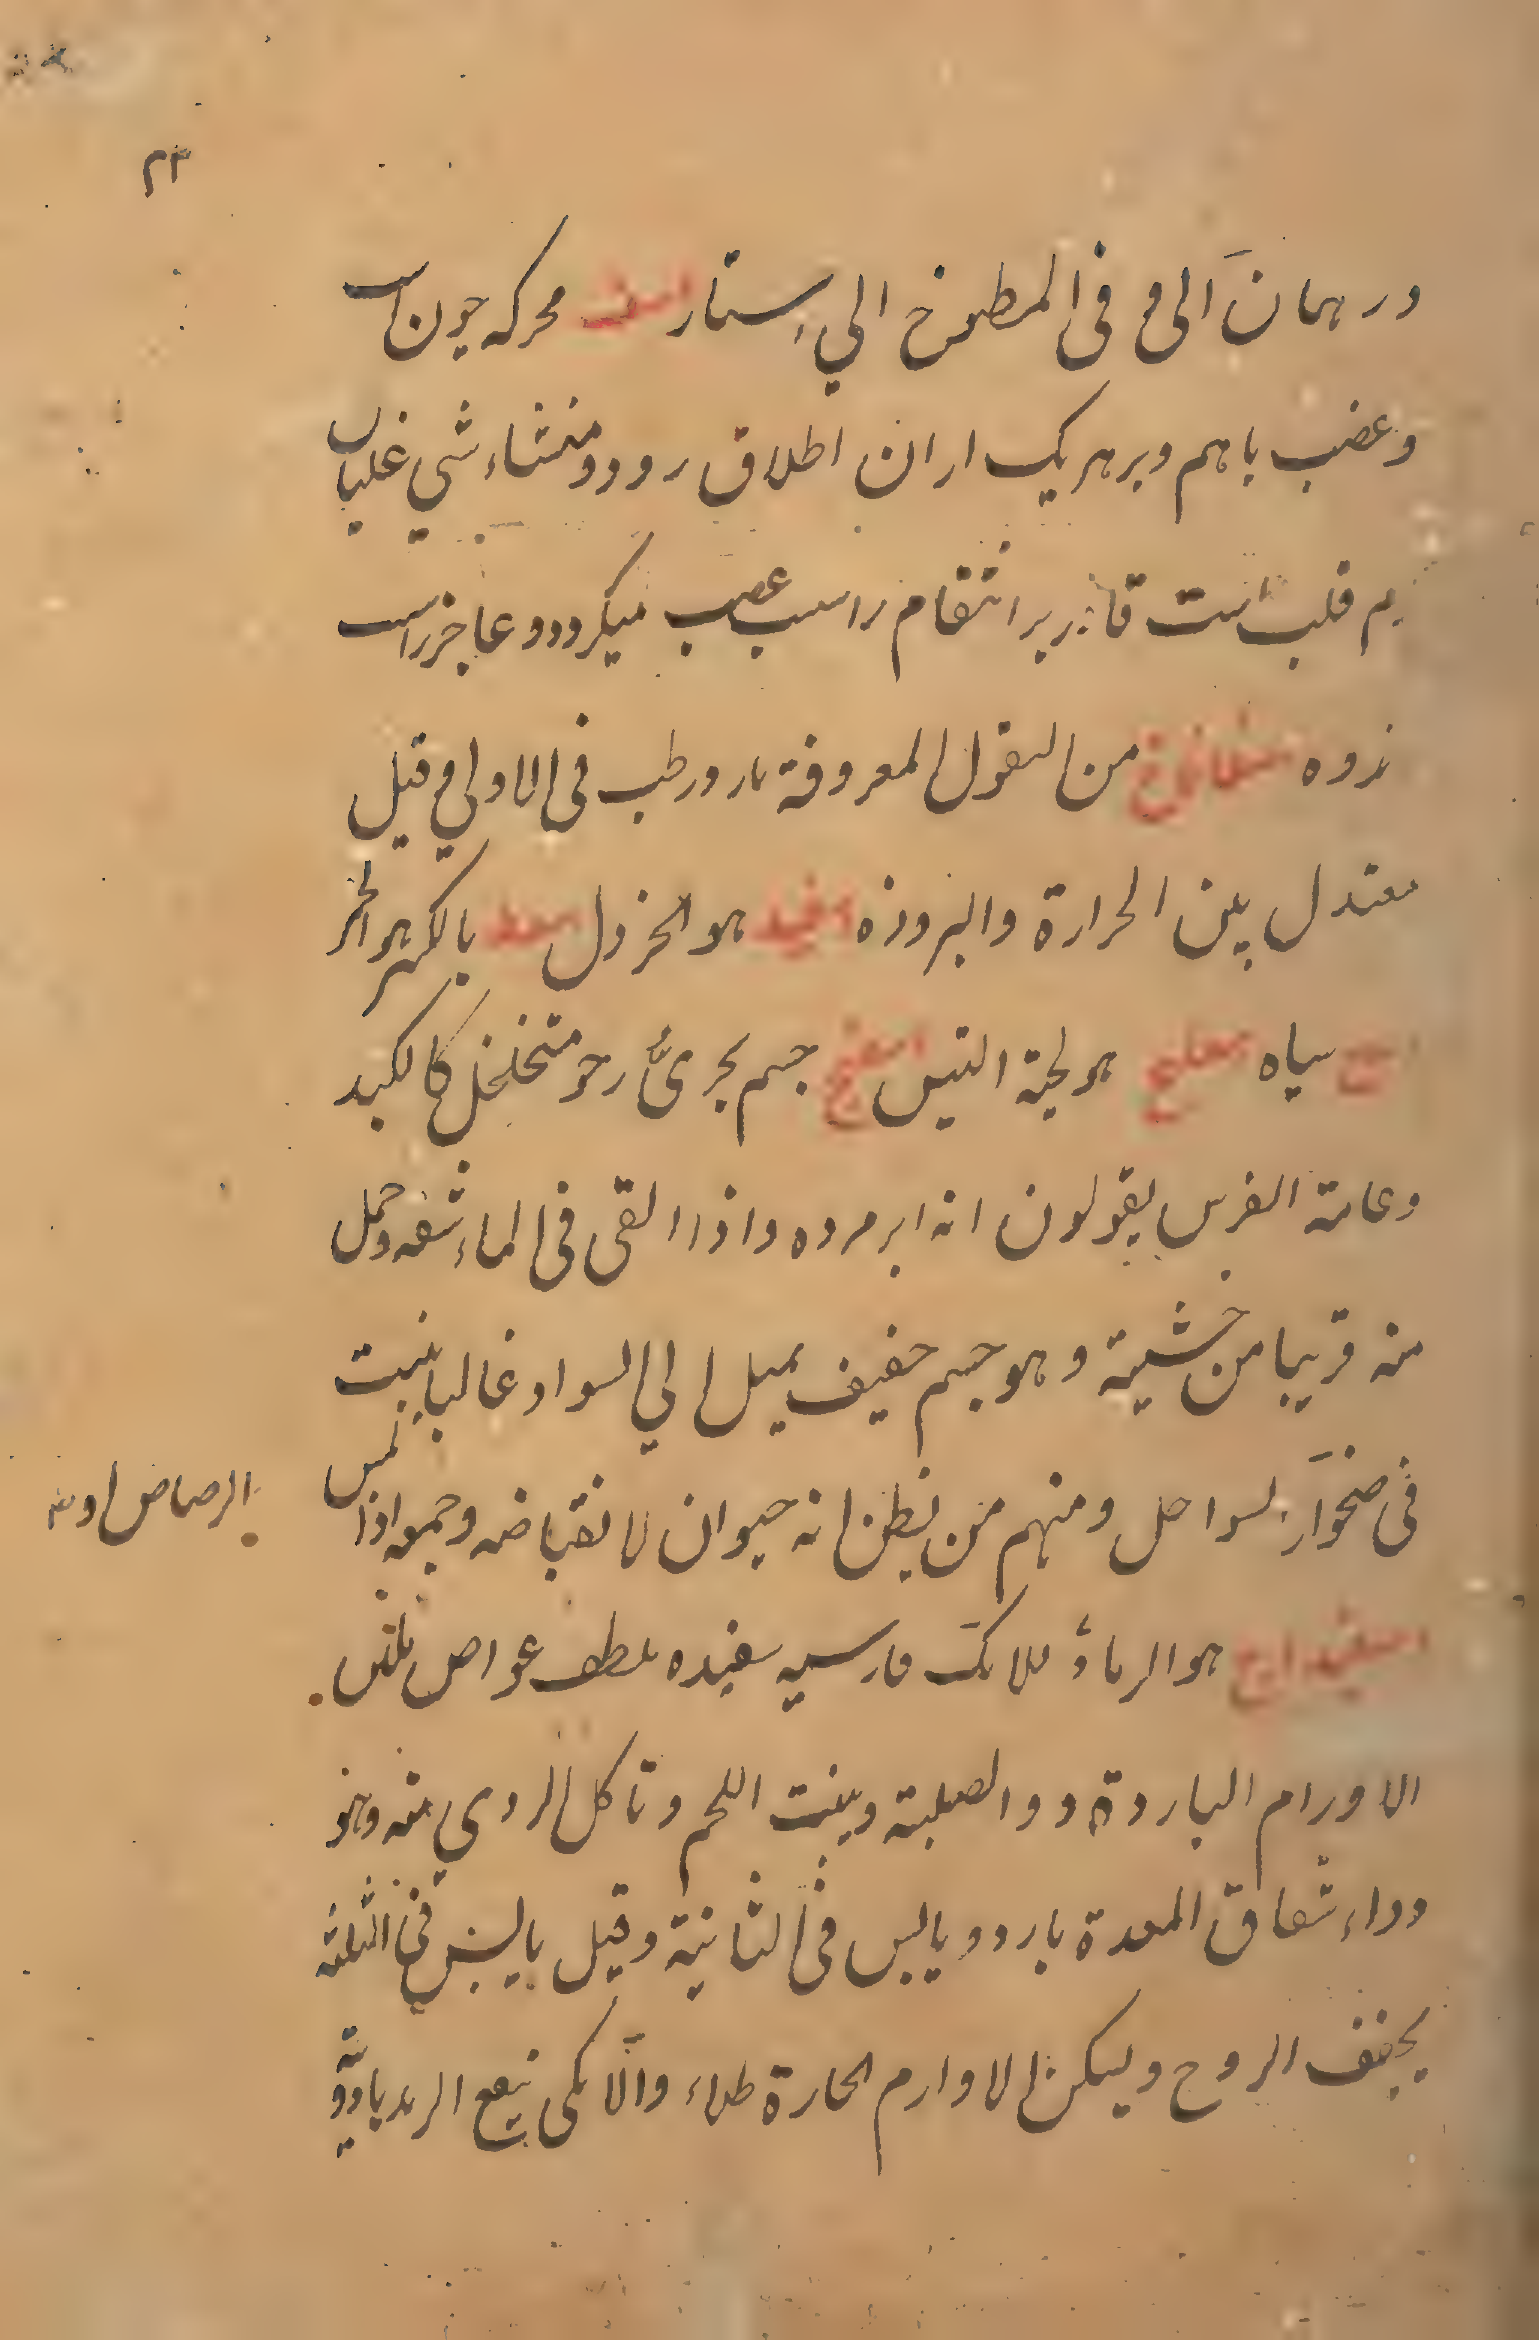 ۲۳
درهمان الی و فی المطبوخ الي إستار اسف محركه جون است
وغضب باهم وبر هر یک ازان اطلاق رود ومنشاء شي غلیان
دم قلب است قادر بر انتقام را سبب غضب میکردد وعاجز راسب
ندوه اسفاناخ من البقول المعروفة بارد رطب فی الاولي وقیل
معتدل بین الحرارة والبروده اسفید هو الخردل اسفند بالکسر هو الخر
سیاه هو لحیة التیس اسفنج جسم بحریّ رخو متخلخل کالکبد
وعامة الفرس یقولون انه ابر مرده واذا القی فی الماء نشفه وحمل
منه قریبا من خشیة وهو جسم خفیف یمیل الي السواد غالبا ینبت
فی صخور السواحل ومنهم من یظن انه حیوان لانقباضه وجمعه اذا لمس
اسفیداج هو الرماد فارسیه سفیده یلطف غواص یلین
الرصاص او
الاورام الباردة و والصلبة وینبت اللحم وتاکل الردي منه وهو
دواء شقاق المعدة بارد ویابس فی الثانیة وقیل یابس فی الثلثه
یجفف الروح ویسکن الاوارم الحارة طلاء والآنکی نیفع الرمد بادویة